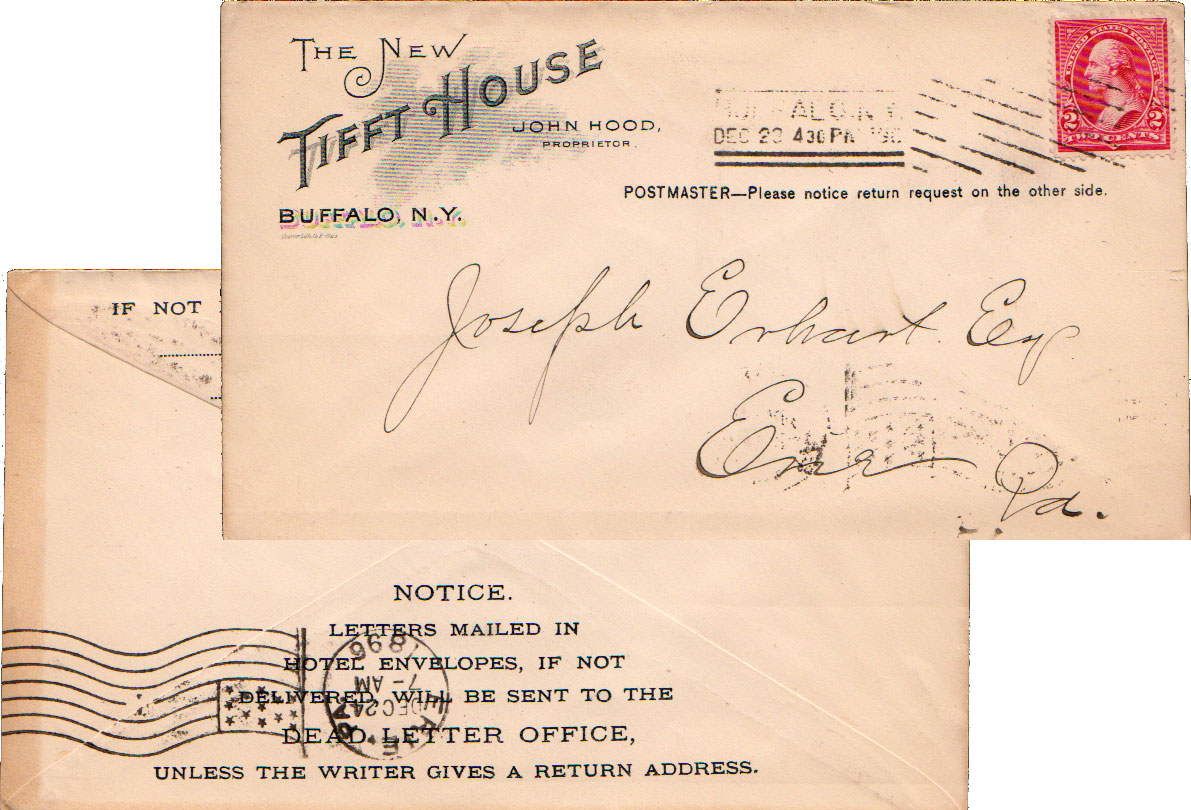 THE NEW
TIFFT HOUSE
JOHN HOOD,
PROPRIETOR.
BUFFALO, N.Y.
DEC 23 4 30 PM
UNITED STATES POSTAGE
2 2
CENTS
POSTMASTER—Please notice return request on the other side.
Joseph Erhart. Esq
Erie
Pa.
IF NOT
NOTICE.
LETTERS MAILED IN
HOTEL ENVELOPES, IF NOT
DELIVERED, WILL BE SENT TO THE
DEAD LETTER OFFICE,
UNLESS THE WRITER GIVES A RETURN ADDRESS.
ERIE PA.
DEC 24
7 - AM
1896